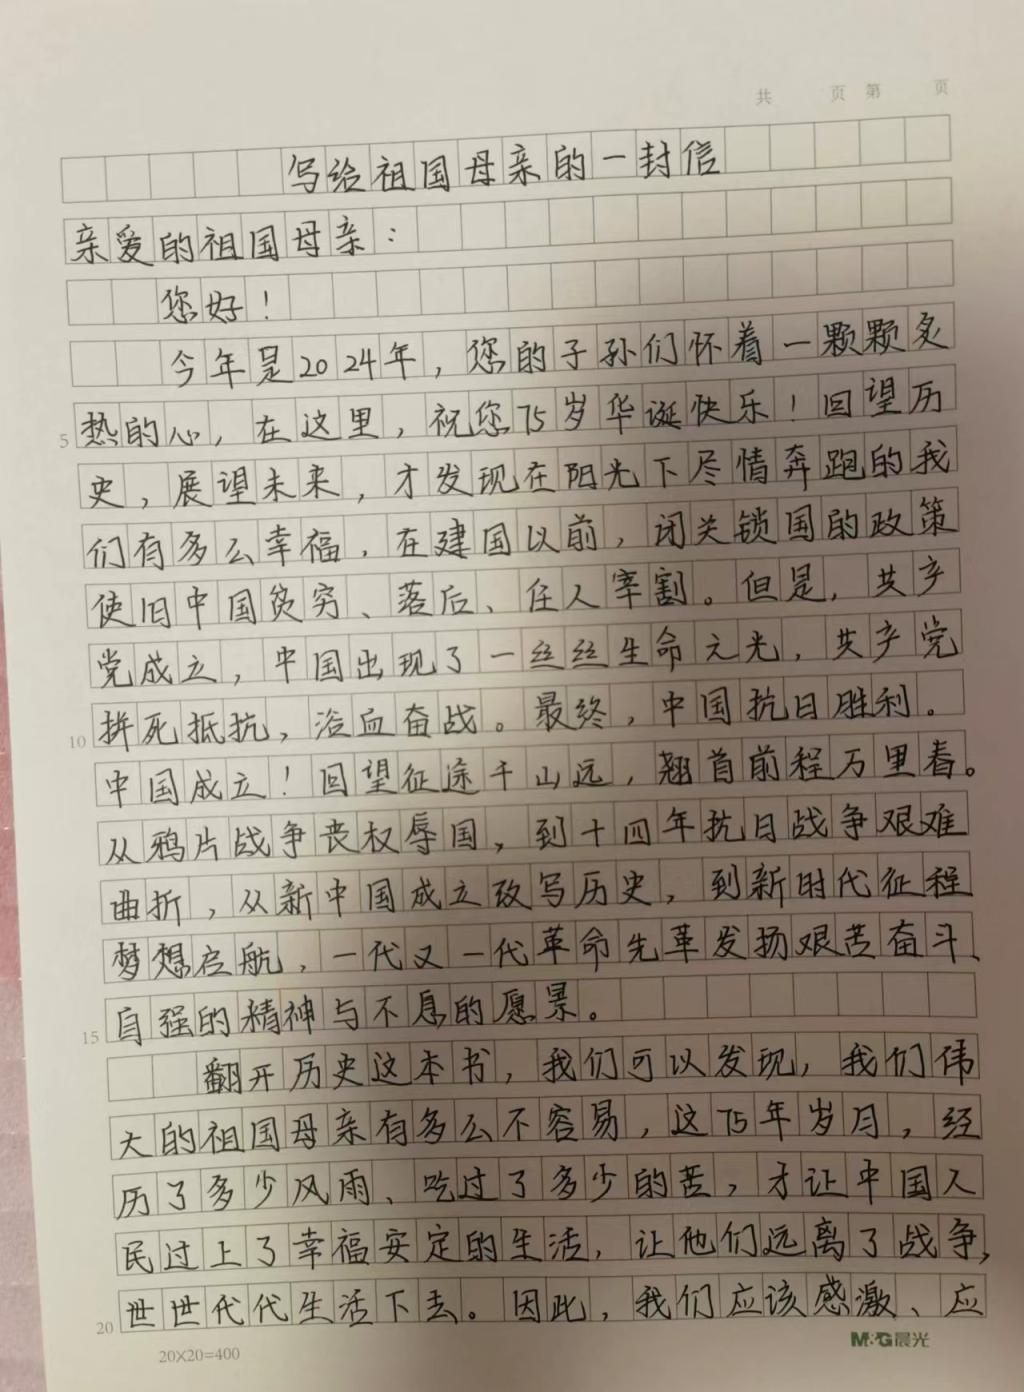 共 页 第 页
写给祖国母亲的一封信
亲爱的祖国母亲：
您好！
今年是2024年，您的子孙们怀着一颗颗炙
5 热的心，在这里，祝您75岁华诞快乐！回望历
史，展望未来，才发现在阳光下尽情奔跑的我
们有多么幸福，在建国以前，闭关锁国的政策
使旧中国贫穷、落后、任人宰割。但是，共产
党成立，中国出现了一丝丝生命元光，共产党
10 拼死抵抗，浴血奋战。最终，中国抗日胜利。
中国成立！回望征途千山远，翘首前程万里春。
从鸦片战争丧权辱国，到十四年抗日战争艰难
曲折，从新中国成立改写历史，到新时代征程
梦想启航，一代又一代革命先革发扬艰苦奋斗、
15 自强的精神与不息的愿景。
翻开历史这本书，我们可以发现，我们伟
大的祖国母亲有多么不容易，这75年岁月，经
历了多少风雨、吃过了多少的苦，才让中国人
民过上了幸福安定的生活，让他们远离了战争，
20 世世代代生活下去。因此，我们应该感激、应
20×20=400
M&G晨光